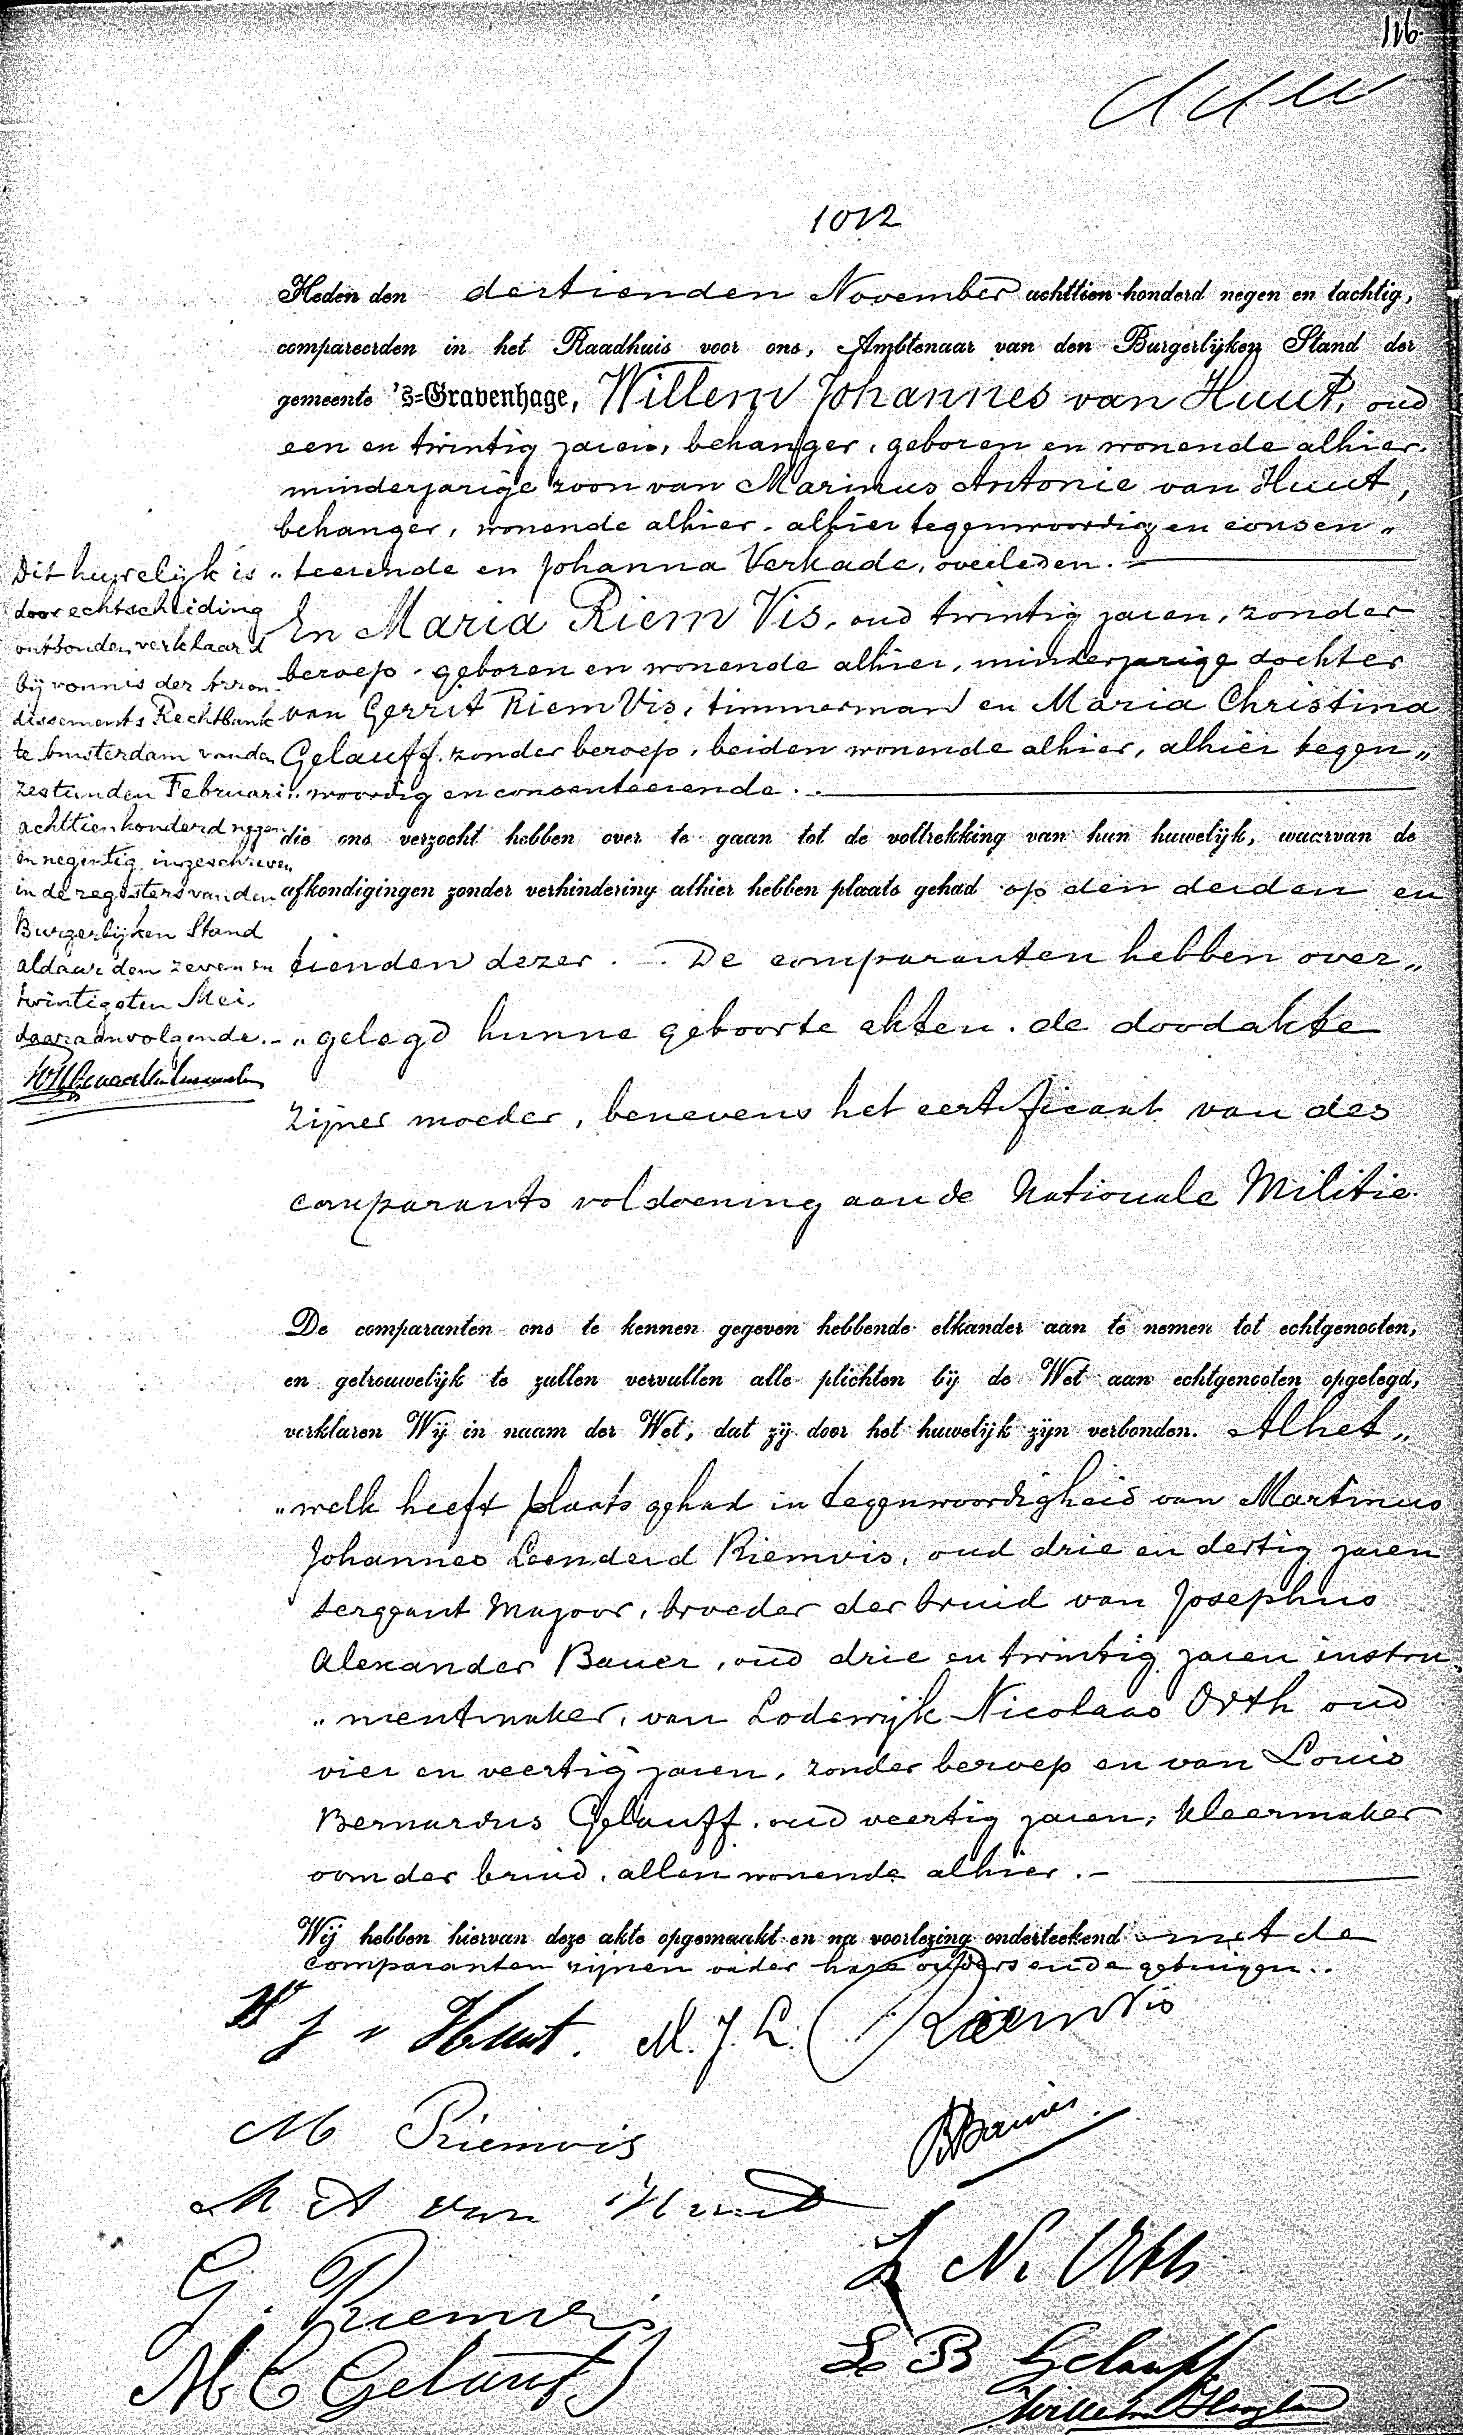 116.
1012
Heden den dertienden November achttien honderd negen en tachtig,
compareerden in het Raadhuis voor ons, Ambtenaar van den Burgerlijken Stand der
gemeente 's=Gravenhage, Willem Johannes van Huut, oud
een en twintig jaren, behanger, geboren en wonende alhier,
minderjarige zoon van Marinus Antonie van Huut,
behanger, wonende alhier, alhier tegenwoordig en consen„
„teerende en Johanna Verkade, overleden.
En Maria Riem Vis, oud twintig jaren, zonder
beroep, geboren en wonende alhier, minderjarige dochter
van Gerrit Riem Vis, timmerman en Maria Christina
Gelauff, zonder beroep, beiden wonende alhier, alhier tegen„
„woordig en consenteerende.
die ons verzocht hebben over te gaan tot de voltrekking van hun huwelijk, waarvan de
afkondigingen zonder verhindering alhier hebben plaats gehad op den derden en
tienden dezer. De comparanten hebben over„
„gelegd hunne geboorte akten, de doodakte
zijner moeder, benevens het certificaat van des
comparants voldoening aan de Nationale Militie.
Dit huwelijk is
door echtscheiding
ontbonden verklaard
bij vonnis der Arron
dissements Rechtbank
te Amsterdam van den
zestienden Februari
achttienhonderd negen
en negentig, ingeschreven
in de registers van den
Burgerlijken Stand
aldaar den zeven en
twintigsten Mei
daaraanvolgende.
De comparanten ons te kennen gegeven hebbende elkander aan te nemen tot echtgenooten,
en getrouwelijk te zullen vervullen alle plichten bij de Wet aan echtgenooten opgelegd,
verklaren Wij in naam der Wet, dat zij door het huwelijk zijn verbonden. Alhet„
„welk heeft plaats gehad in tegenwoordigheid van Martinus
Johannes Leenderd Riemvis, oud drie en dertig jaren
sergeant majoor, broeder der bruid van Josephus
Alexander Bauer, oud drie en twintig jaren instru„
„mentmaker, van Lodewijk Nicolaas Orth oud
vier en veertig jaren, zonder beroep en van Louis
Bernardus Gelauff, oud veertig jaren, kleermaker
oom der bruid, allen wonende alhier.
Wij hebben hiervan deze akte opgemaakt en na voorlezing onderteekend met de
comparanten zijnen vader hare ouders en de getuigen.
W J v Huut. M. J. L. Riemvis
M Riemvis
M A van Huut
L N. Orth
G. Riemvis
L B Gelauff
M C Gelauff